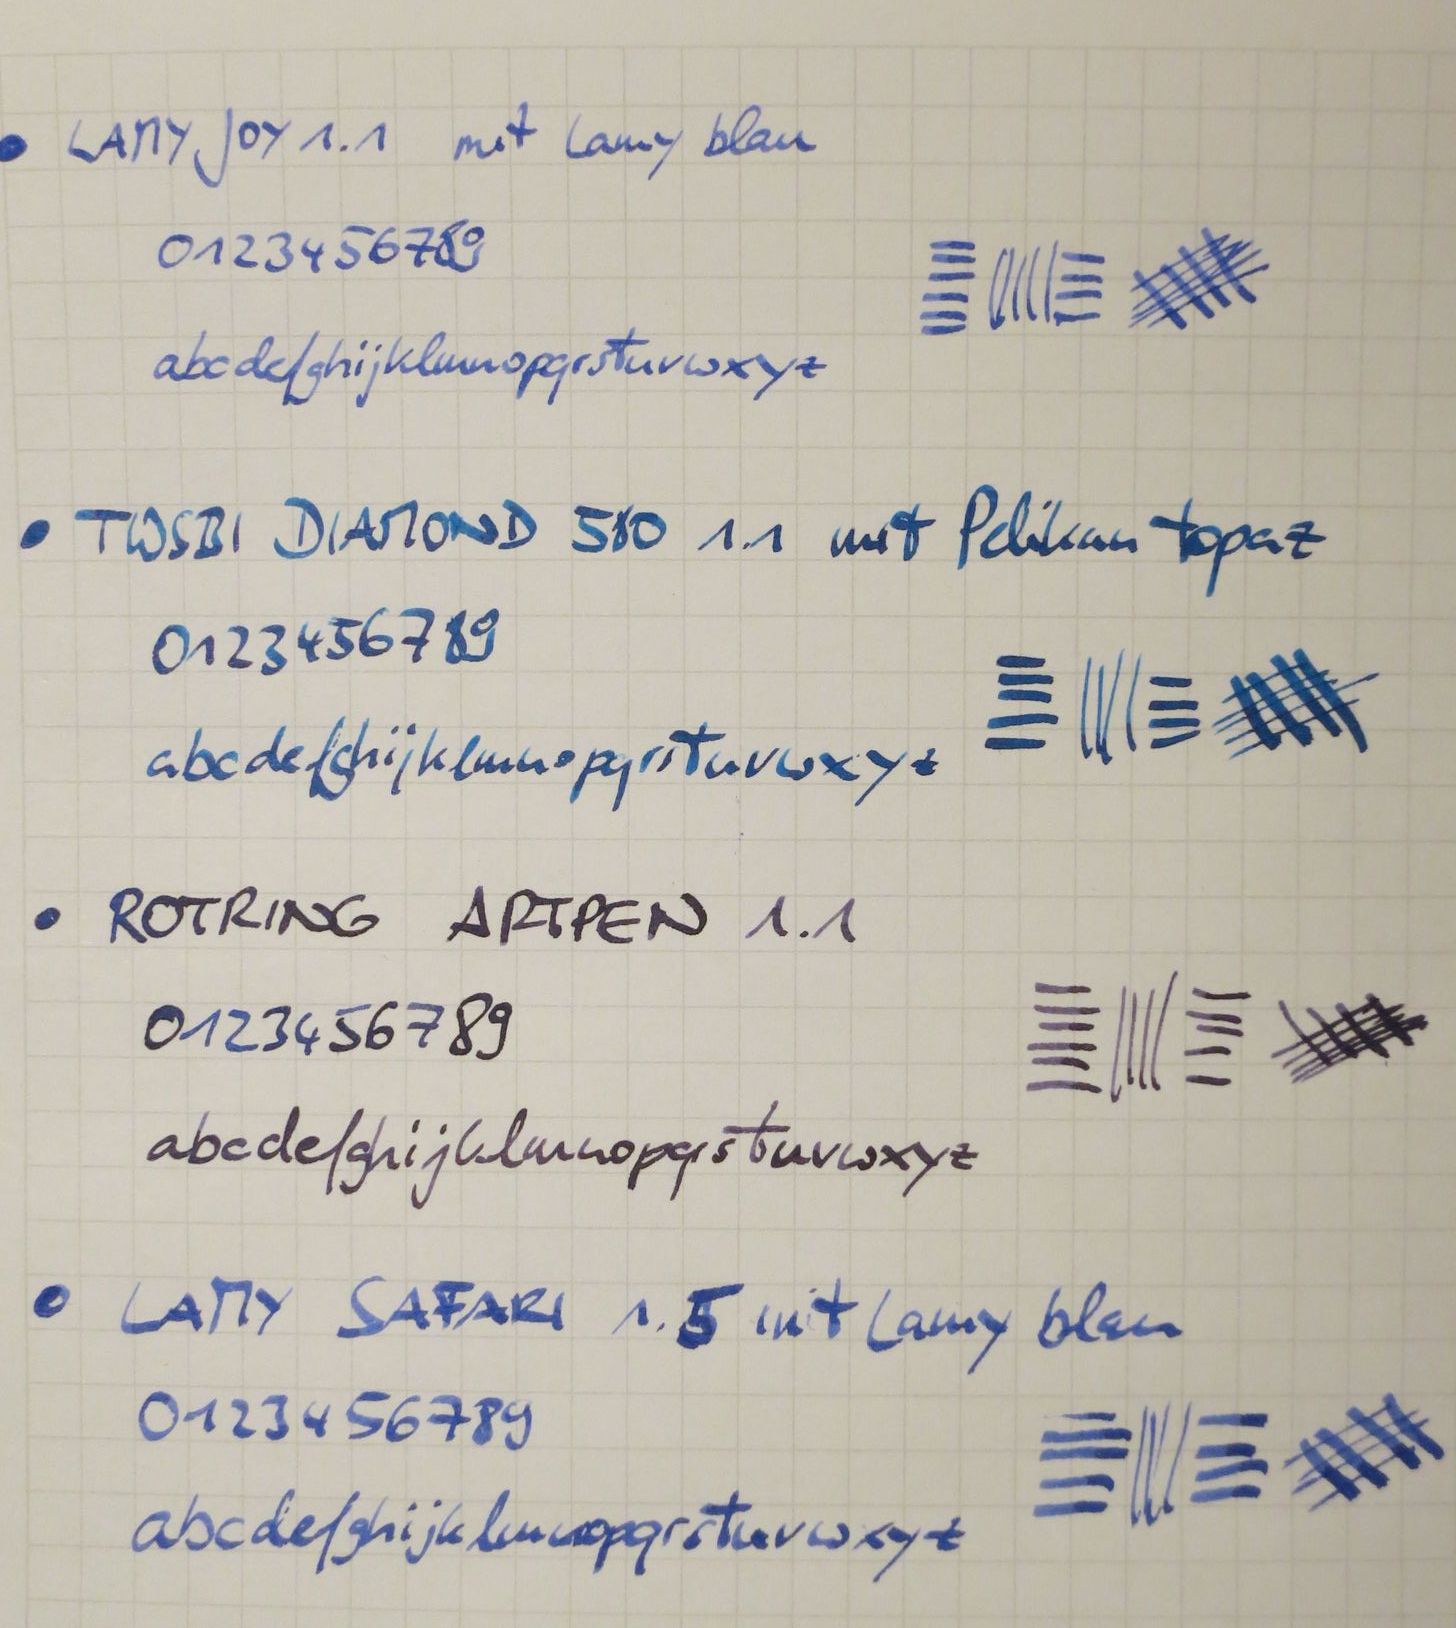 LAMY JOY 1.1 mit Lamy blau
0123456789
abcdefghijklmnopqrstuvwxyz
TWSBI DIAMOND 580 1.1 mit Pelikan topaz
0123456789
abcdefghijklmnopqrstuvwxyz
ROTRING ARTPEN 1.1
0123456789
abcdefghijklmnopqrstuvwxyz
LAMY SAFARI 1.5 mit Lamy blau
0123456789
abcdefghijklmnopqrstuvwxyz